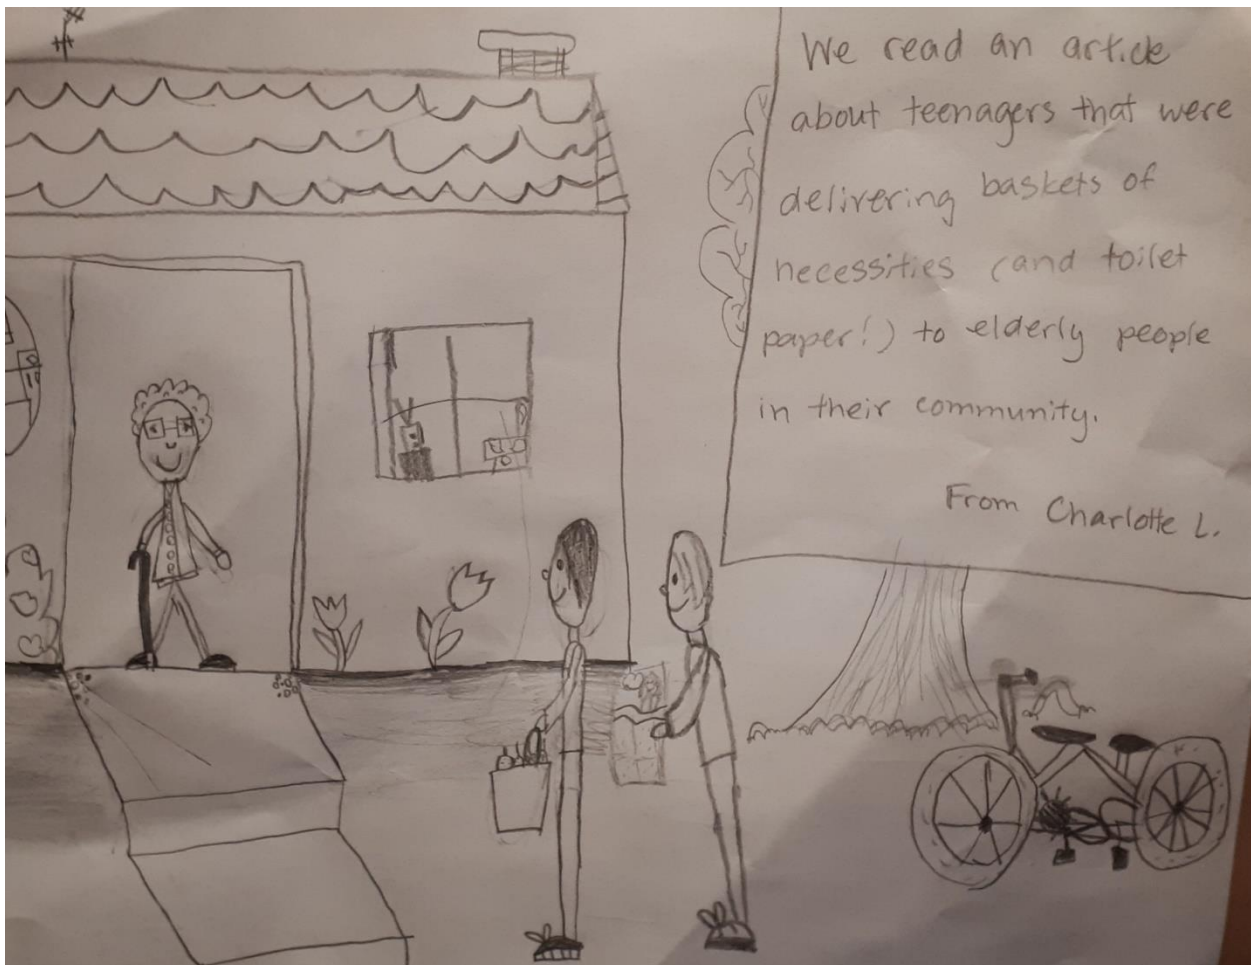 We read an article
about teenagers that were
delivering baskets of
necessities (and toilet
paper!) to elderly people
in their community.
From Charlotte L.